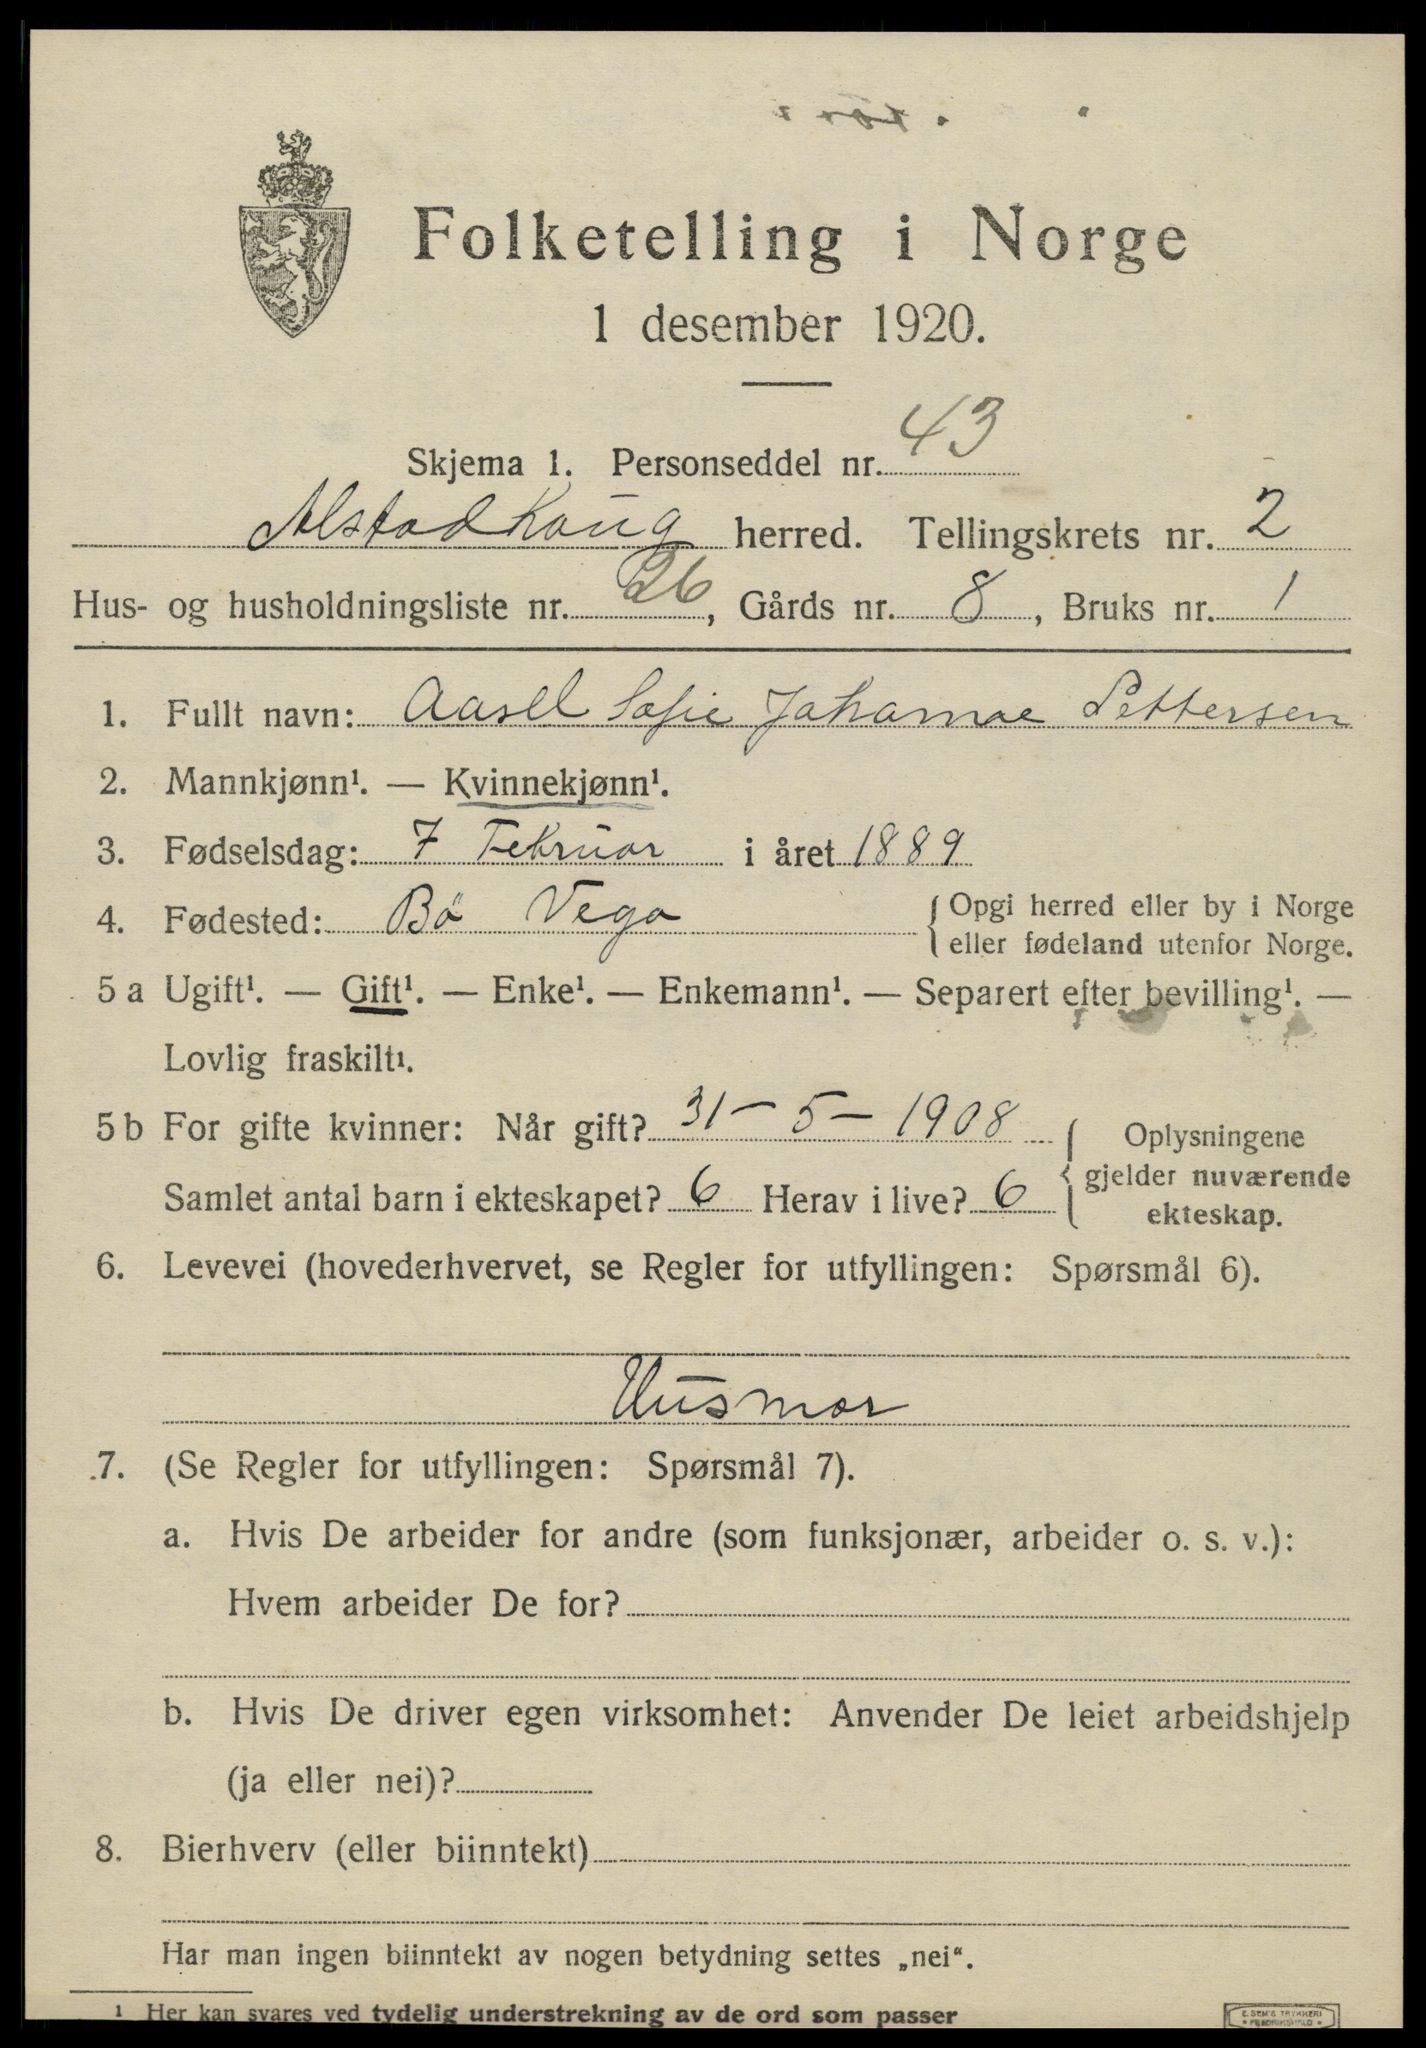 Folketelling i Norge
1 desember 1920.
Skjema 1. Personseddel nr. 43
Alstadhoug herred. Tellingskrets nr. 2
Hus- og husholdningsliste nr. 26, Gårds nr. 8, Bruks nr. 1
1. Fullt navn: Aasel Sofie Johanna Pettersen
2. Mannkjønn¹. — Kvinnekjønn¹.
3. Fødselsdag: 7 Februar i året 1889
4. Fødested: Bö Vega
{ Opgi herred eller by i Norge
eller fødeland utenfor Norge.
5 a Ugift¹. — Gift¹. — Enke¹. — Enkemann¹. — Separert efter bevilling¹. —
Lovlig fraskilt¹.
5 b For gifte kvinner: Når gift? 31 – 5 – 1908
Samlet antal barn i ekteskapet? 6 Herav i live? 6
{ Oplysningene
gjelder nuværende
ekteskap.
6. Levevei (hovederhvervet, se Regler for utfyllingen: Spørsmål 6).
Husmor
7. (Se Regler for utfyllingen: Spørsmål 7).
a. Hvis De arbeider for andre (som funksjonær, arbeider o. s. v.):
Hvem arbeider De for?
b. Hvis De driver egen virksomhet: Anvender De leiet arbeidshjelp
(ja eller nei)?
8. Bierhverv (eller biinntekt)
Har man ingen biinntekt av nogen betydning settes „nei“.
¹ Her kan svares ved tydelig understrekning av de ord som passer
E. SEM'S TRYKKERI
• FREDRIKSHALD •